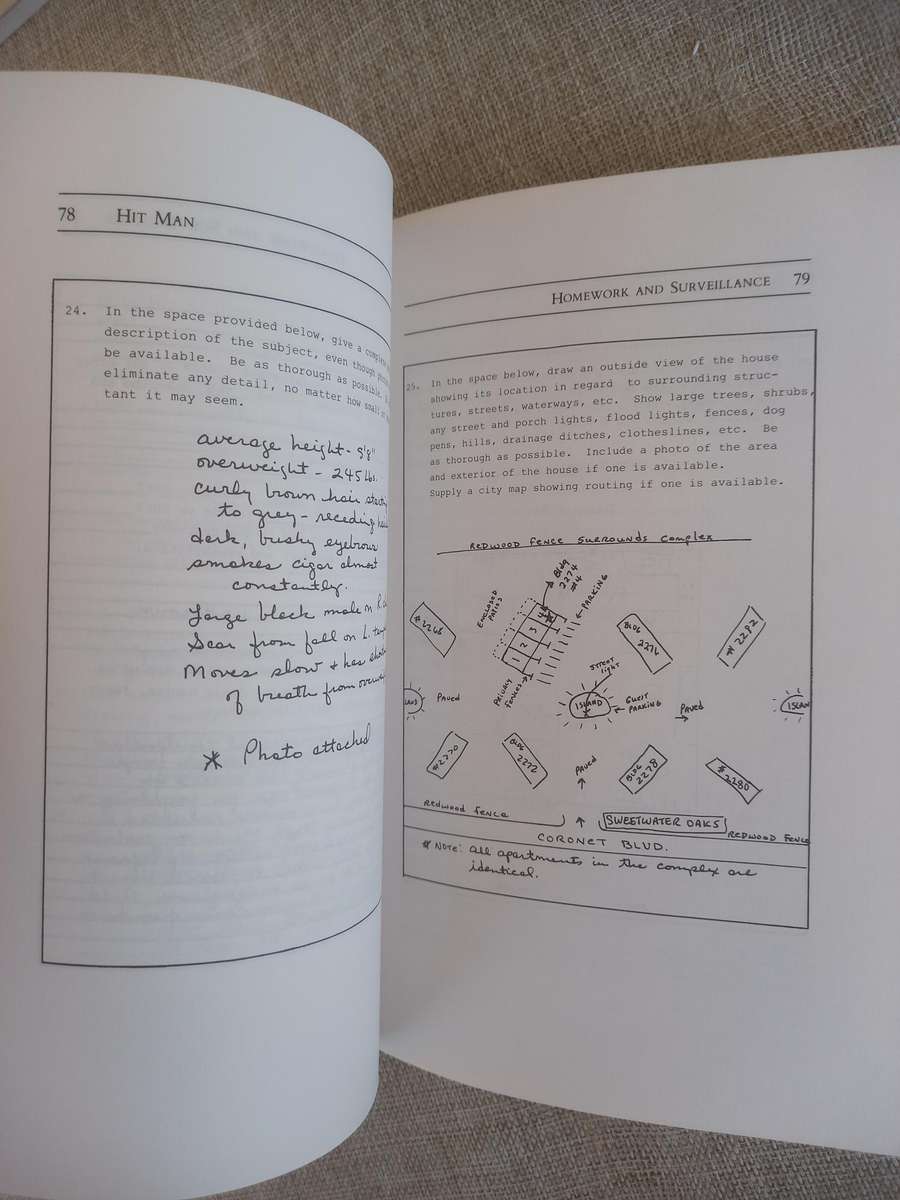 78 HIT MAN
24. In the space provided below, give a
description of the subject, even though
be available. Be as thorough as possible.
eliminate any detail, no matter how small or
tant it may seem.
average height - 5'8"
overweight - 245 lbs.
curly brown hair
to grey - receding
dark, bushy eyebrows
smokes cigar almost
constantly.
Large black mole on R.
Scar from fall on L.
Moves slow + has
of breath from
* Photo attached
HOMEWORK AND SURVEILLANCE 79
25. In the space below, draw an outside view of the house
showing its location in regard to surrounding struc-
tures, streets, waterways, etc. Show large trees, shrubs,
any street and porch lights, flood lights, fences, dog
pens, hills, drainage ditches, clotheslines, etc. Be
as thorough as possible. Include a photo of the area
and exterior of the house if one is available.
Supply a city map showing routing if one is available.
REDWOOD FENCE SURROUNDS COMPLEX
Bldg
2274
#4
PARKING
ENCLOSED
PATIOS
1 2 3 4
PRIVACY
FENCES
#2266
BLDG
2276
#2282
STREET
LIGHT
ISLAND
GUEST
PARKING
PAVED
PAVED
ISLAN
LAND
#2270
BLDG
2272
PAVED
BLDG
2278
#2280
REDWOOD FENCE
SWEETWATER OAKS
REDWOOD FENCE
CORONET BLVD.
* NOTE: All apartments in the complex are
identical.